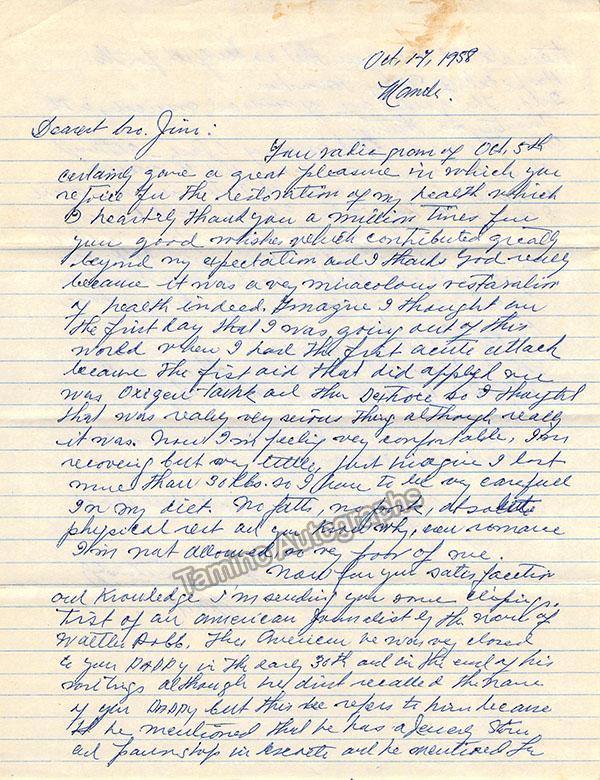 Oct, 17, 1958
Dearest bro. Jim:
Your radiogram of Oct, 5th
certainly gave a great pleasure in which you
rejoice for the restoration of my health which
I heartily thank you a million times for
your good wishes which contributed greatly
beyond my expectation and I thanks God really
because it was a very miraculous restoration
of health indeed. Imagine I thought on
the first day that I was going out of this
world when I had the first acute attack
because the first aid that did applyd me
was Oxigen-Tank and then so I thought
that was really very serious thing although really
it was. Now I'm feeling very comfortable, I'm
recovering but very little, just imagine I lost
more than 30 lbs. so I have to be very carefull
in my diet. No fatts, no pork, absolute
physical rest and you know why, even romance
I'm not allowed, so very poor of me.
Now for your satisfaction
and Knowledge I'm sending you some clipings,
first of an american Journalist by the name of
Walter Robb. This American he was very closed
to your DADDY in the early 30th and in the end of his
writings although he dint recalled the name
of your DADDY but this he refers to him because
he mentioned that he has a Jewely Store
and pawnshop in and he mentioned the
Tamino Autographs